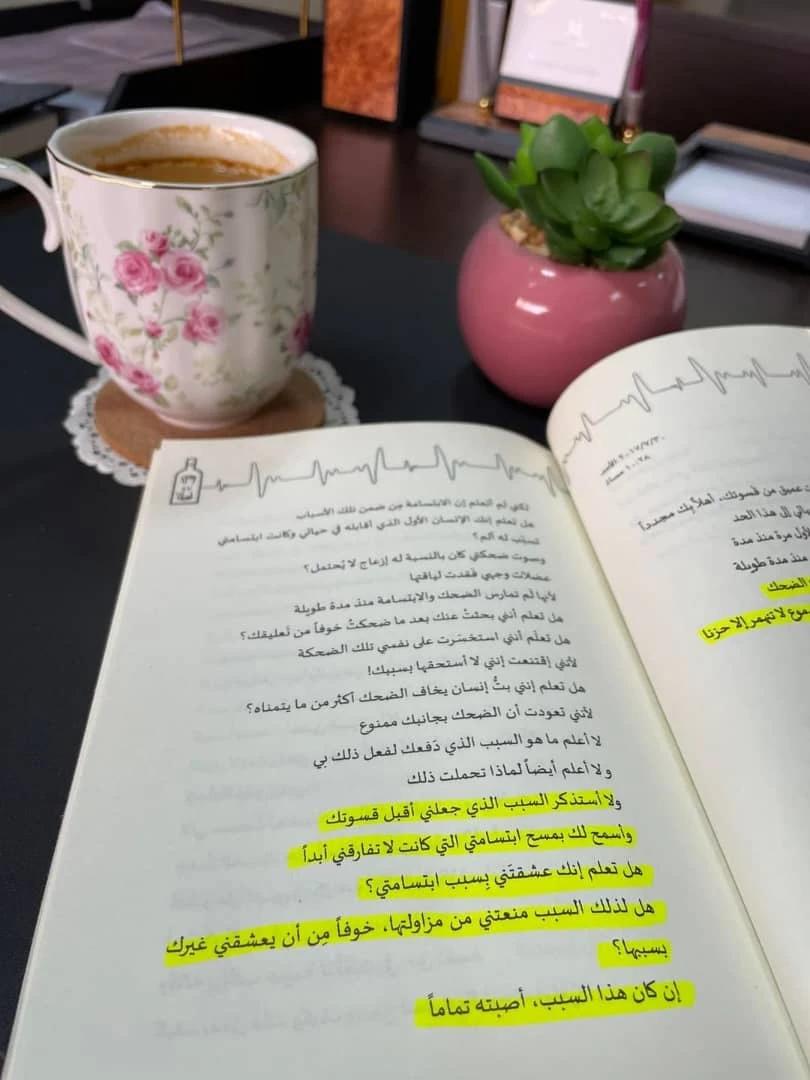 لكني لم أتعلم إن الابتسامة من ضمن تلك الأسباب
هل تعلم إنك الإنسان الأول الذي أقابله في حياتي وكانت ابتسامتي
تسبّب له ألم؟
وصوت ضحكتي كان بالنسبة له إزعاج لا يُحتمل؟
عضلات وجهي فقدت لياقتها
لأنها لم تمارس الضحك والابتسامة منذ مدة طويلة
هل تعلم أنني بحثتُ عنك بعد ما ضحكتُ خوفاً من تَعليقك؟
هل تعلَم أنني استخسَرت على نفسي تلك الضحكة
لأنني إقتنعت إنني لا أستحقها بسببك!
هل تعلم إنني بتُّ إنسان يخاف الضحك أكثر من ما يتمناه؟
لأنني تعودت أن الضحك بجانبك ممنوع
لا أعلم ما هو السبب الذي دَفعك لفعل ذلك بي
ولا أعلم أيضاً لماذا تحملت ذلك
ولا أستذكر السبب الذي جعلني أقبل قسوتك
وأسمح لك بمسح ابتسامتي التي كانت لا تفارقني أبداً
هل تعلم إنك عشقتَني بِسبب ابتسامتي؟
هل لذلك السبب منعتني من مزاولتها، خوفاً مِن أن يعشقني غيرك
بسببها؟
إن كان هذا السبب، أصبته تماماً
٢٠١٧/٧/٣٠
١٠:٢٨ مساءً
عميق من قسوتك، أهلاً بك مجدداً
إلى هذا الحد
مرة منذ مدة
منذ مدة طويلة
الضحك
لا تنهمر إلا حزنا